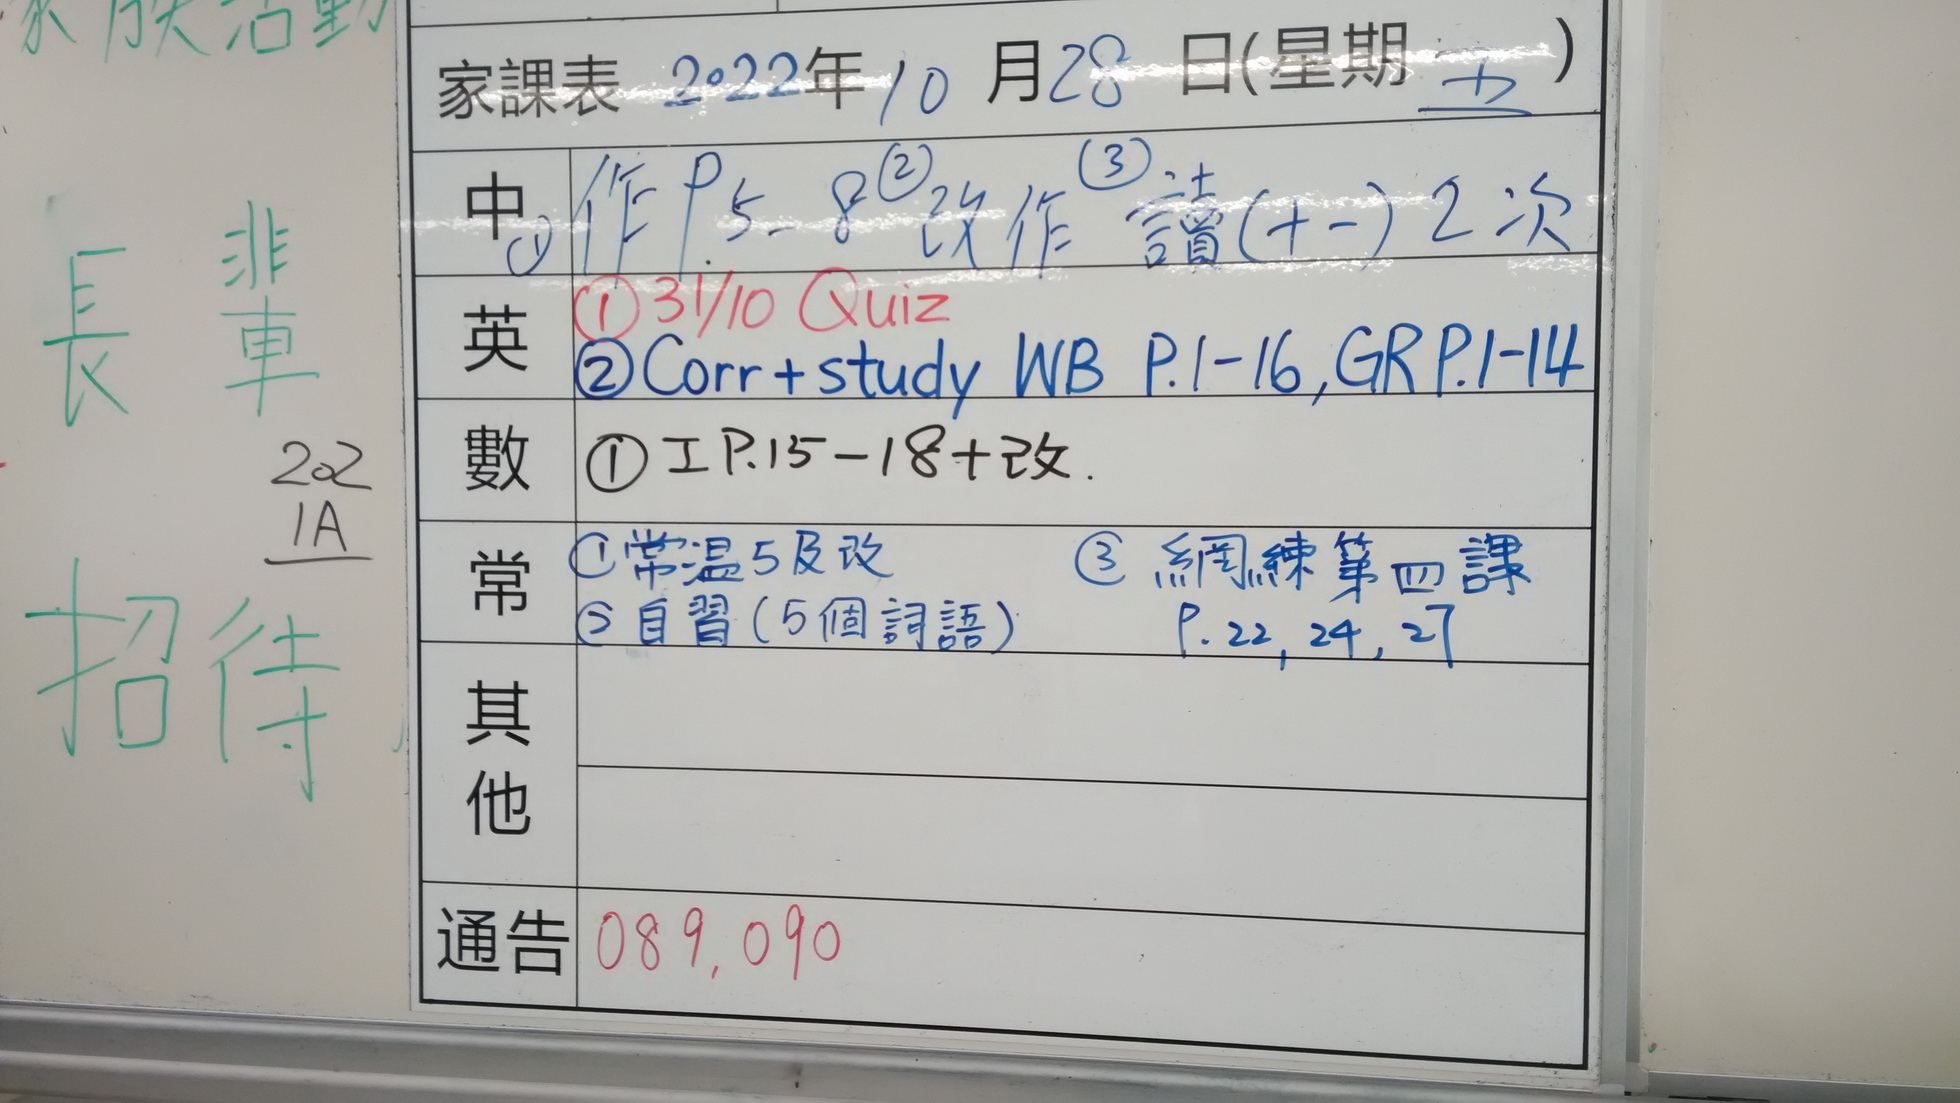 家族活動
長輩
202
1A
招待
家課表 2022年10月28日(星期五)
中 ①作P.5-8 ②改作 ③讀(十一)2次
英 ①31/10 Quiz
②Corr+study WB P.1-16, GR P.1-14
數 ①工P.15-18+改.
常 ①常温5及改 ③網練第四課
②自習(5個詞語) P.22, 24, 27
其他
通告 089, 090